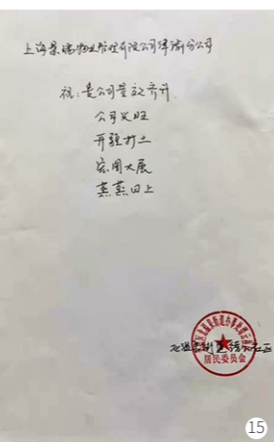 上海景瑞物业管理有限公司津湖分公司
祝：贵公司量效齐升
公司兴旺
开疆扩土
宏图大展
蒸蒸日上
居民委员会
15